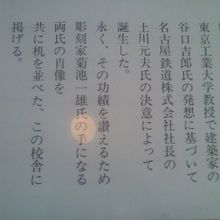 東京工業大学教授で建築家の
谷口吉郎氏の発想に基づいて
名古屋鉄道株式会社社長の
土川元夫氏の決意によって
誕生した。
永く、その功績を讃えるため
彫刻家菊池一雄氏の手になる
両氏の肖像を
共に机を並べた、この校舎に
掲げる。